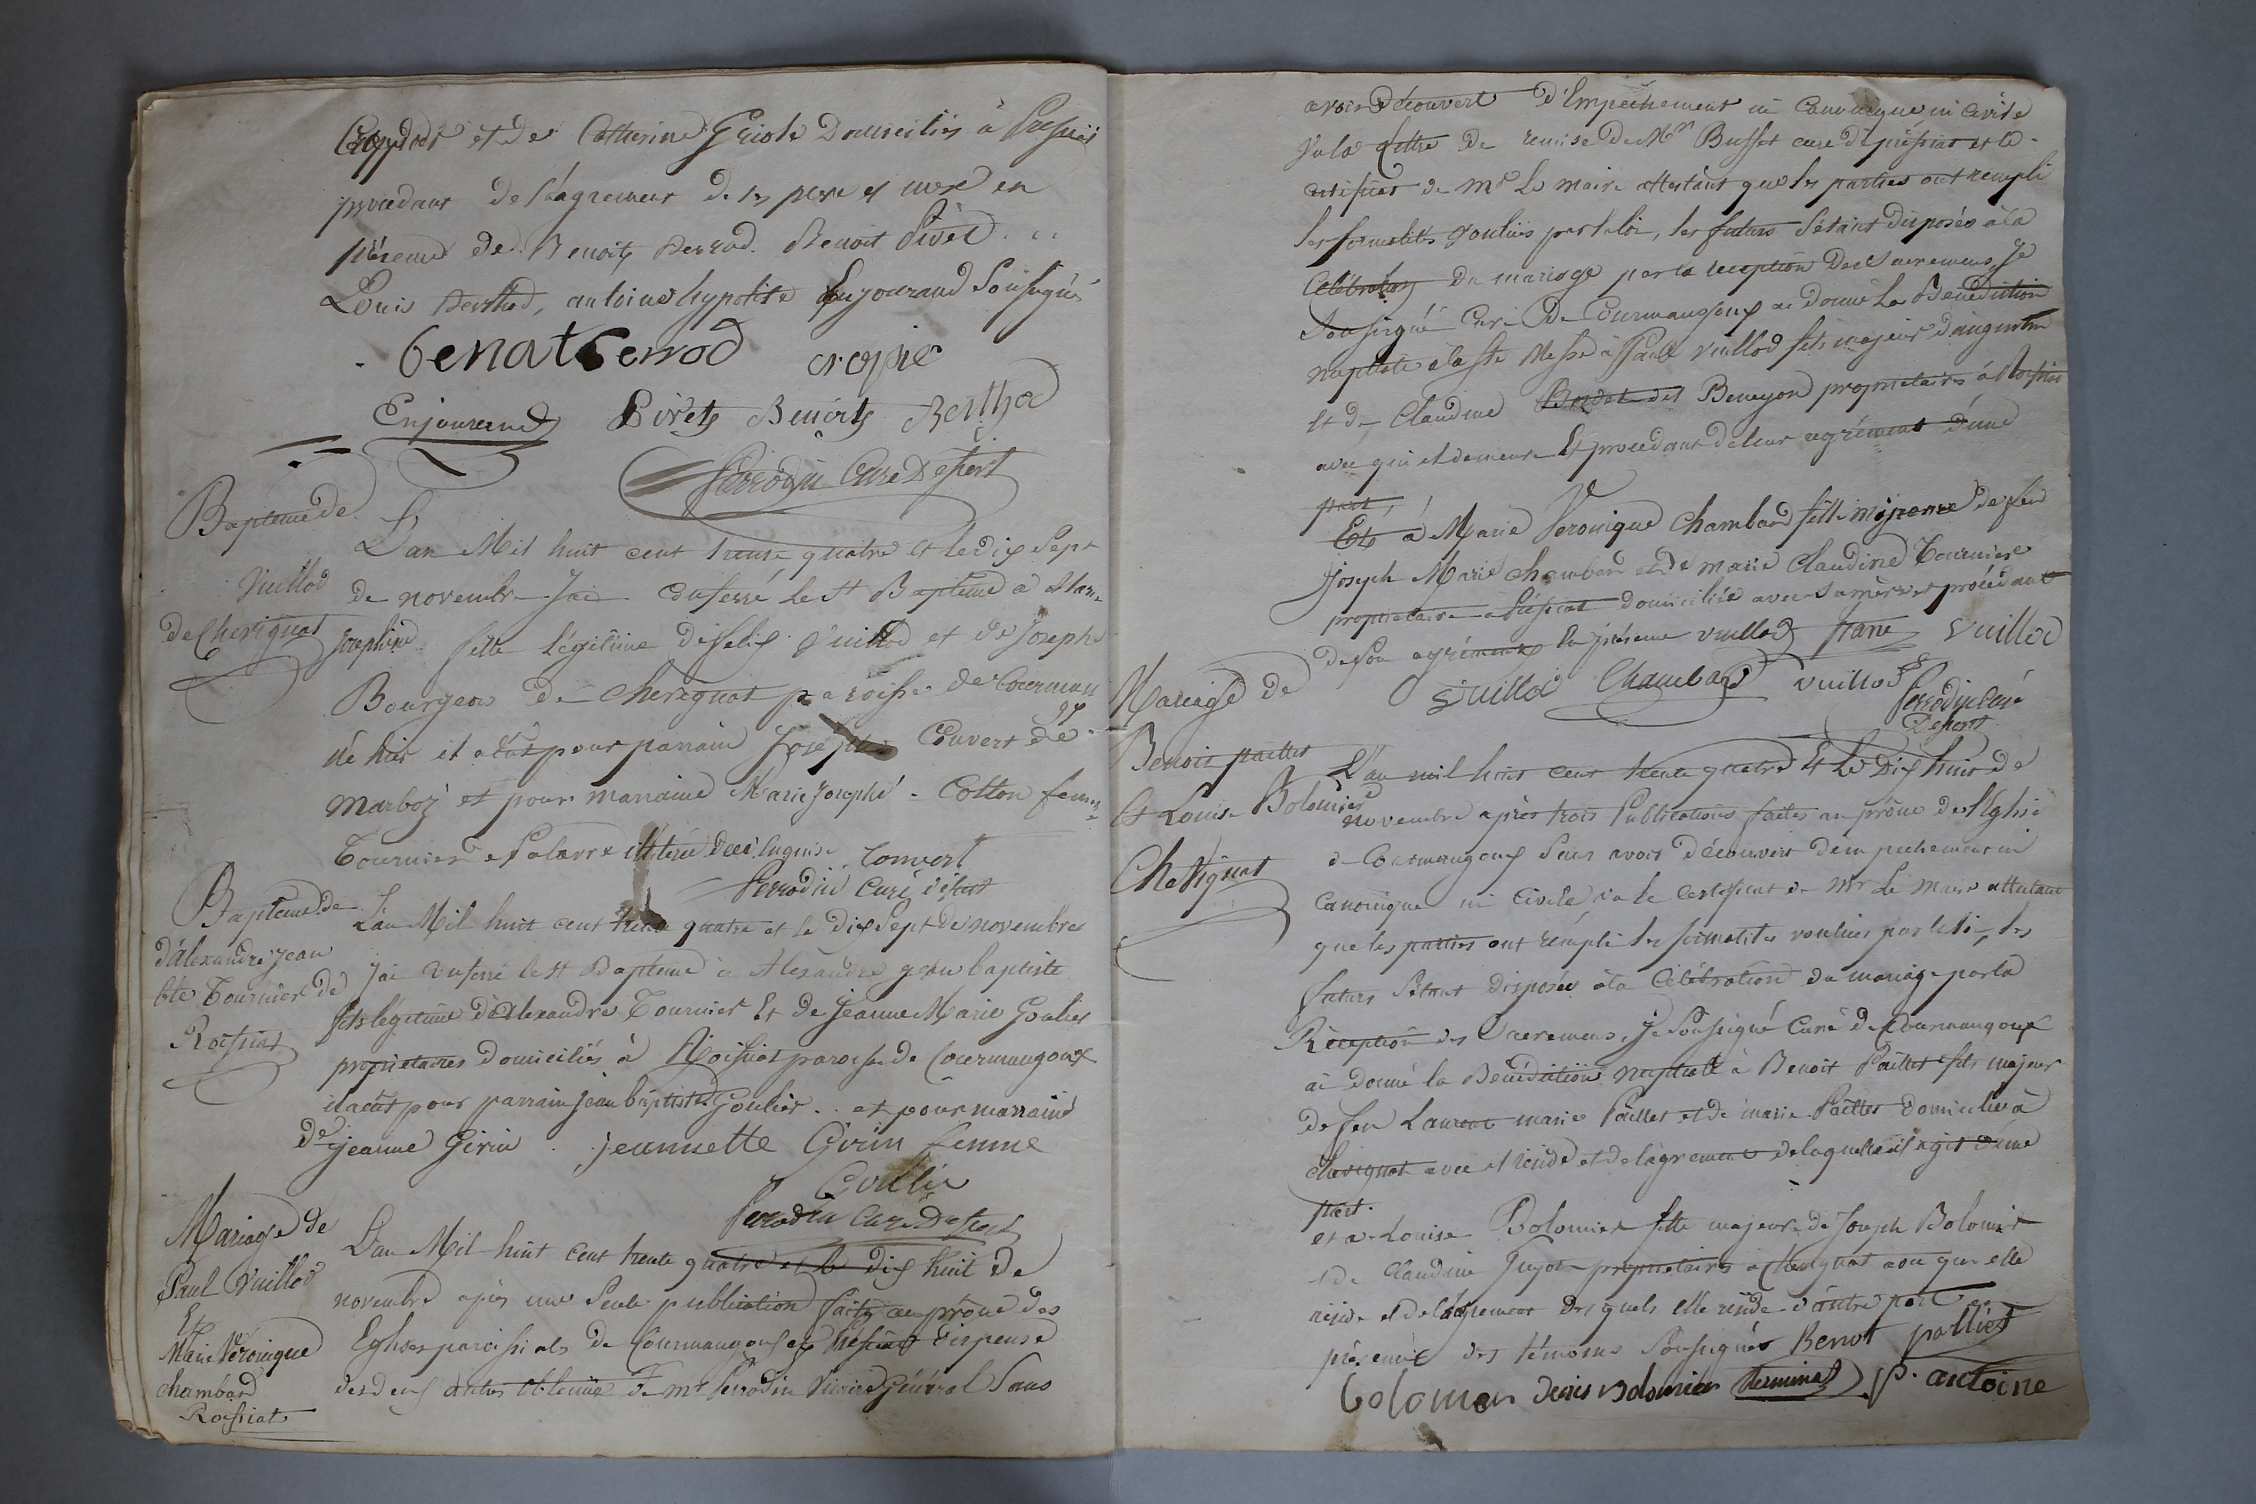 et de Catherine Griole Domiciliés à Pressiat
procedant de l'agrement de ses pere et mere en
présence de Benoit Perrod. Benoit Pivet ..
Louis Berthod, antoine hypolite Enjourand Soussignés
benoat Perrod
Enjourand Pivet Benoit Berthod
Perrodin Curé Desserv
Bapteme de
Vuillod
de Chevignat
L'an Mil huit cent trente quatre et le dix Sept
de novembre J'ai conferré le St Bapteme à Marie
Josephine fille légitime de felix Vuillod et de Josephe
Bourgeois de Chevignat paroisse de Courman
goux
né hier il a eû pour parrain Joseph Convert de
Marboz et pour marraine Marie Josephe Cotton femme
Tournier
Convert
Perrodin Curé desst
Bapteme de
d'alexandre Jean
bte Tournier de
Roissiat
L'an Mil huit cent trente quatre et le dix Sept de novembre
J'ai conferré le St Bapteme à Alexandre Jean baptiste
fils légitime d'Alexandre Tournier Et de Jeanne Marie Goulier
propriétaires domiciliés à Roissiat paroisse de Courmangoux
il a eût pour parrain Jean baptiste Goulier .. et pour marraine
de Jeanne Girin . jeannette Girin femme
Goullier
Perrodin Curé Desserv
Mariage de
Paul Vuillod
Et
Marie Véronique
chambard
Roissiat
L'an Mil huit cent trente quatre et le dix huit de
novembre après une Seule publication faite au prône des
Eglises paroissiales de Courmangoux et Pressiat dispense
des deux autres obtenüe de mr Perrodin Vicaire Général Sans
avoir Découvert d'Empéchement ni Canonique ni Civile
Vu la lettre de remise de Mr Buffet curé de pressiat et le
certificat de Mr Le Maire attestant que les parties ont rempli
les formalités voulües par la loi, les futurs S'étant disposés à la
Célébration du mariage par la reception des Sacremens, Je
Soussigné Curé de Courmangoux ai Donné La Bénédiction
nuptiale à la Ste Messe à Paul Vuillod fils majeur d'augustin
et de Claudine Beneyon propriétaires à Roissiat
avec qui il demeure Et procedant de leur agrément d'une
part,
Et à Marie Veronique Chambard fille mineure de feu
Joseph Marie Chambard et de marie Claudine Tournier
propriétaire à Pressiat domiciliée avec sa mère et procédant
de son agrément En présence vuillod Vuillod
Vuillod Chambard vuillod
Perrodin Curé
Desserv
Mariage de
Benoit paillet
Et Louise Bolomier
Chevignat
L'an mil huit cent trente quatre Et Le Dix huit de
novembre après trois Publications faites au prône de l'Eglise
de Courmangoux Sans avoir Découvert d'empechement ni
Canonique ni Civile vu le Certificat de Mr Le Maire attestant
que les parties ont rempli les formalités voulües par la loi, les
futurs S'étant disposés à la Célébration du mariage par la
Réception des Sacremens, Je Soussigné Curé de Courmangoux
ai donné la Bénédiction nuptiale à Benoit Paillet fils majeur
de feu Laurent marie Paillet et de marie Paillet domiciliés à
chevignat avec et de l'agrement de laquelle il agit d'une
part.
et a Louise Bolomier fille majeure de Joseph Bolomier
et de Claudine Guyot propriétaires à Chevignat avec que elle
réside et de l'agrement desquels elle d'autre part en
présence des témoins Soussignés Benoit palliet
bolomier denis Bolomier P. antoine